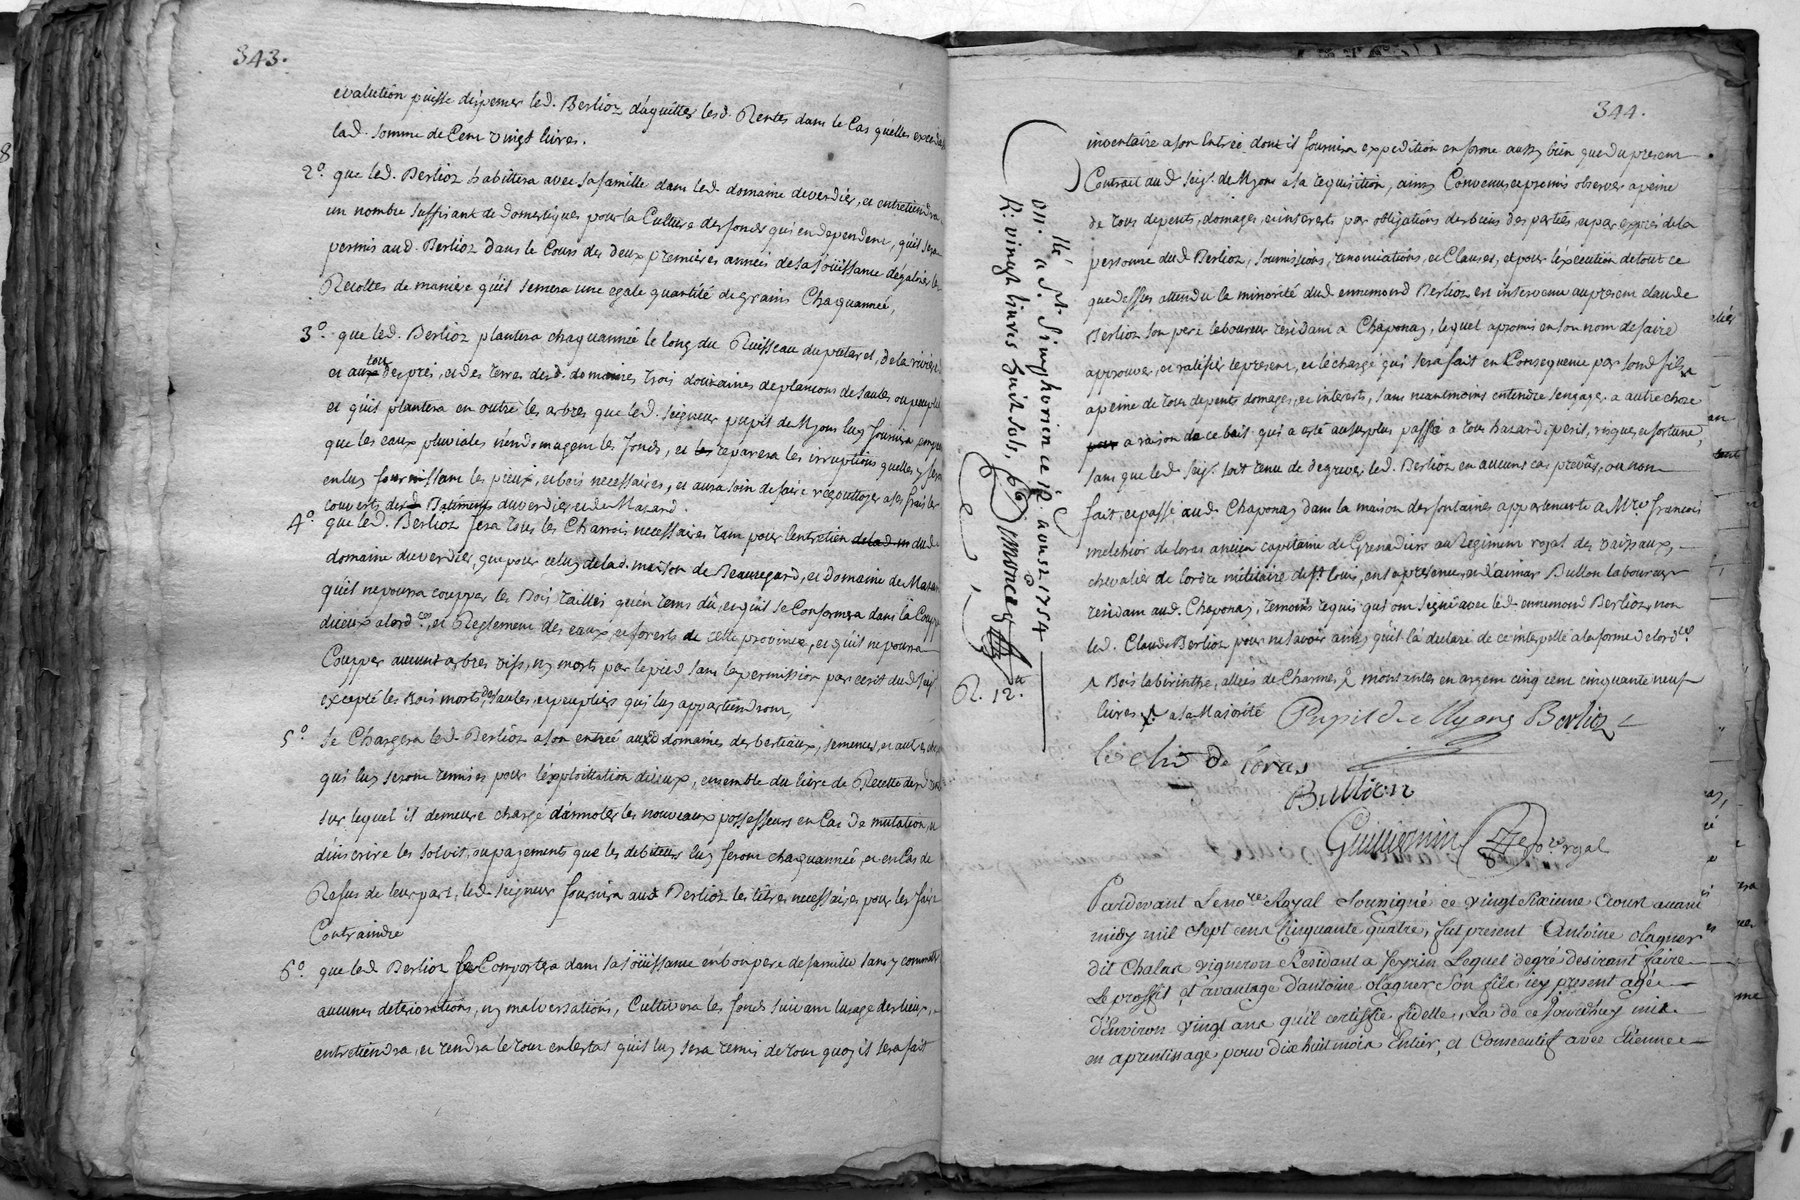 343.
evalution puisse dispenser led. Berlioz d'aquitter lesd. Rentes dans le Cas qu'elles
lad. somme de Cent vingt livres.
2o. que led. Berlioz habittera avec sa famille dans led domaine du verdier, et entretiendra
un nombre suffisant de domestiques pour la Culture des fonds qui en dependent, qu'il sera
permis aud. Berlioz dans le Cours des deux premieres années de sa joüissance d'égaliser les
Recoltes de maniere qu'il semera une egale quantité de grains Chaquannée,
3o. que led. Berlioz plantera chaquannée le long du Ruisseau du putaret, de la riviere
et tour des prés, et des terres desd. domaines trois douzaines de plancons de saules ou peupliers
et qu'il plantera en outre les arbres que led. seigneur pupil de Myons luy fournira,
que les eaux pluviales n'endomagent les fonds, et reparera les irruptions quelles y feront
en luy fournissant les pieux, et bois necessaires, et aura soin de faire regouttoyer a ses frais les
couverts des Batiments du verdier et de Mazard.
4o. que led. Berlioz fera tous les Charrois necessaires tant pour l'entretien dud.
domaine du verdier, que pour celuy de lad. maison de Beauregard, et domaine de Mazard
qu'il ne pourra coupper les Bois taillis qu'en tems dû, et qu'il se Conformera dans la Coupe
d'iceux a l'ord.ce, et Reglement des eaux, et forests de cette province, et qu'il ne pourra
Coupper aucuns arbres vifs, ny morts par le pied sans la permission par ecrit dud seig
excepté les Bois morts, des saules, et peupliers qui luy appartiendront,
5o. se Chargera led. Berlioz a son entrée auxd domaines des bestiaux, semences, et autres
qui luy seront remises pour l'exploittation d'iceux, ensemble du livre de Recette des
sur lequel il demeure chargé d'annoter les nouveaux possesseurs en Cas de mutation, et
d'inscrire les solvit, ou payements que les debiteurs luy feront chaquannée, et en Cas de
Refus de leur part, led. seigneur fournira aud Berlioz les titres necessaires pour les faire
Contraindre
6o. que led Berlioz se Comportera dans sa joüissance en bon pere de famille sans y commettre
aucunes deteriorations, ny malversations, Cultivera les fonds suivant lusage des lieux,
entretiendra, et rendra le tour en lestat qu'il luy sera remis de tour quoy il sera fait
344.
inventaire a son Entrée dont il fournira expedition en forme aussy bien que du present
Contrat aud seigr. de Myons a sa requisition, ainsy Convenu, et promis observer a peine
de tous depents, domages, et interests par obligations des biens des parties, et par exprés de la
personne dud Berlioz, soumissions, renonciations, et Clauses, et pour l'execution de tout ce
que dessus attendu la minorité dud ennemond Berlioz est intervenu au present claude
Berlioz son pere laboureur residant a Chaponay, lequel a promis en son nom de faire
approuver, et ratifier le present, et le chargé qui sera fait en Consequence par sond fils
a peine de tous depents domages, et interests, sans neantmoins entendre s'engager a autre chose
a raison de ce bail qui a esté au surplus passé a tous hazard, peril, risques, et fortune,
sans que led seigr. soit tenu de degrever led. Berlioz en aucuns cas prevûs, ou non
fait, et passé aud. Chaponay dans la maison des fontaines appartenante a Mre. francois
melchior de loras ancien capitaine de Grenadiers au Regiment royal des vaissaux,
chevalier de lordre militaire de st. louis, en sa presence, et d'aimar Bullion laboureur
residant aud. Chaponay, temoins requis qui ont signé avec led. ennemond Berlioz, non
led. Claude Berlioz pour ne savoir ainsy qu'il l'a declaré de ce interpellé a la forme de l'ord.ce
Bois labirinthe, allees de Charmes, montantes en argent cinq cent cinquante neuf
livres a sa Majorité Pupil de Myons Berlioz
le chr de Loras
Bullion
Guillermin nore. royal
ollé a St. Simphorien ce 10 aoust 1754
R. vingt livres huit sols,
R. 12
Pardevant Le nore. Royal soussigné ce vingt sixieme Aoust avant
midy mil sept cent Cinquante quatre, fut present Antoine olagner
dit Chalas vigneron Residant a feyzin Lequel de gré desirant faire
Le proffit, et avantage d'antoine olagner son fils icy present agée
d'Environ vingt ans qu'il certiffie fidelle, La de ce jourdhuy mis
en aprentissage pour dix huit mois Entier, et Consecutif avec Etienne